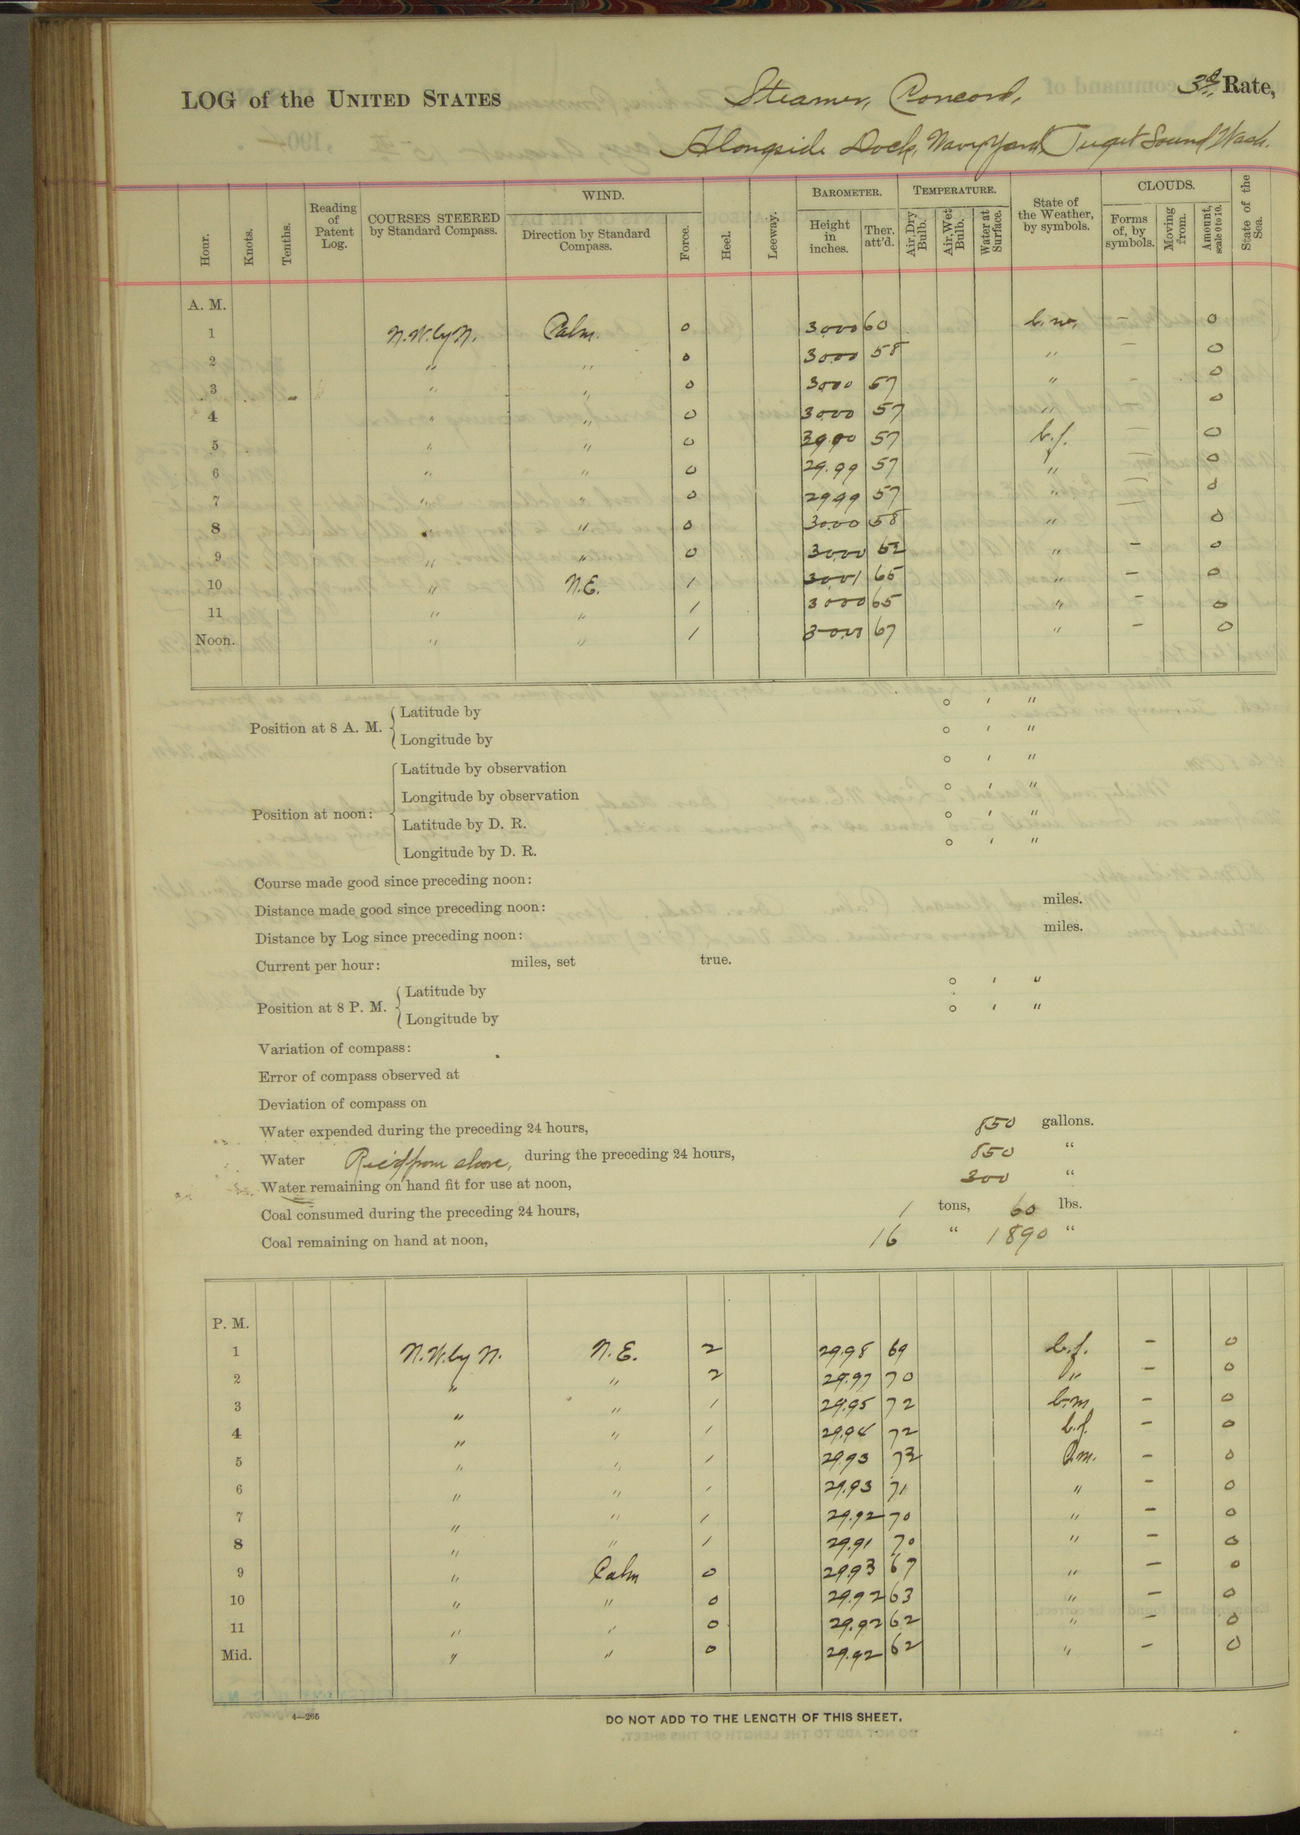 LOG of the UNITED STATES Steamer, Concord, 3d Rate,
Alongside Dock, Navy Yard, Puget Sound, Wash.
Hour. Knots. Tenths. Reading of Patent Log. COURSES STEERED by Standard Compass. WIND. Direction by Standard Compass. Force. Heel. Leeway. BAROMETER. Height in inches. Ther. att'd. TEMPERATURE. Air, Dry Bulb. Air, Wet Bulb. Water at Surface. State of the Weather, by symbols. CLOUDS. Forms of, by symbols. Moving from. Amount, scale 0 to 10. State of the Sea.
A. M.
1 N.W.by N. Calm. 0 30.00 60 b.m. — 0
2 " " 0 30.00 58 " — 0
3 " " 0 30.00 57 " — 0
4 " " 0 30.00 57 " — 0
5 " " 0 57 b.f. — 0
6 " " 0 29.99 57 " — 0
7 " " 0 29.99 57 " — 0
8 " " 0 30.00 58 " — 0
9 " " 0 30.00 62 " — 0
10 " N.E. 1 30.01 65 " — 0
11 " " 1 30.00 65 " — 0
Noon. " " 1 30.00 67 " — 0
Position at 8 A. M. { Latitude by ° ' "
Longitude by ° ' "
Position at noon: { Latitude by observation ° ' "
Longitude by observation ° ' "
Latitude by D. R. ° ' "
Longitude by D. R. ° ' "
Course made good since preceding noon:
Distance made good since preceding noon: miles.
Distance by Log since preceding noon: miles.
Current per hour: miles, set true.
Position at 8 P. M. { Latitude by ° ' "
Longitude by ° ' "
Variation of compass:
Error of compass observed at
Deviation of compass on
Water expended during the preceding 24 hours, 850 gallons.
Water Rec'd from shore, during the preceding 24 hours, 850 "
Water remaining on hand fit for use at noon, 300 "
Coal consumed during the preceding 24 hours, 1 tons, 60 lbs.
Coal remaining on hand at noon, 16 " 1890 "
P. M.
1 N.W.by N. N.E. 2 29.98 69 b.f. — 0
2 " " 2 29.97 70 " — 0
3 " " 1 29.95 72 b.m — 0
4 " " 1 29.94 72 b.f. — 0
5 " " 1 29.93 73 — 0
6 " " 1 29.93 71 " — 0
7 " " 1 29.92 70 " — 0
8 " " 1 29.91 70 " — 0
9 " Calm 0 29.93 67 " — 0
10 " " 0 29.92 63 " — 0
11 " " 0 29.92 62 " — 0
Mid. " " 0 29.92 62 " — 0
4—266
DO NOT ADD TO THE LENGTH OF THIS SHEET.